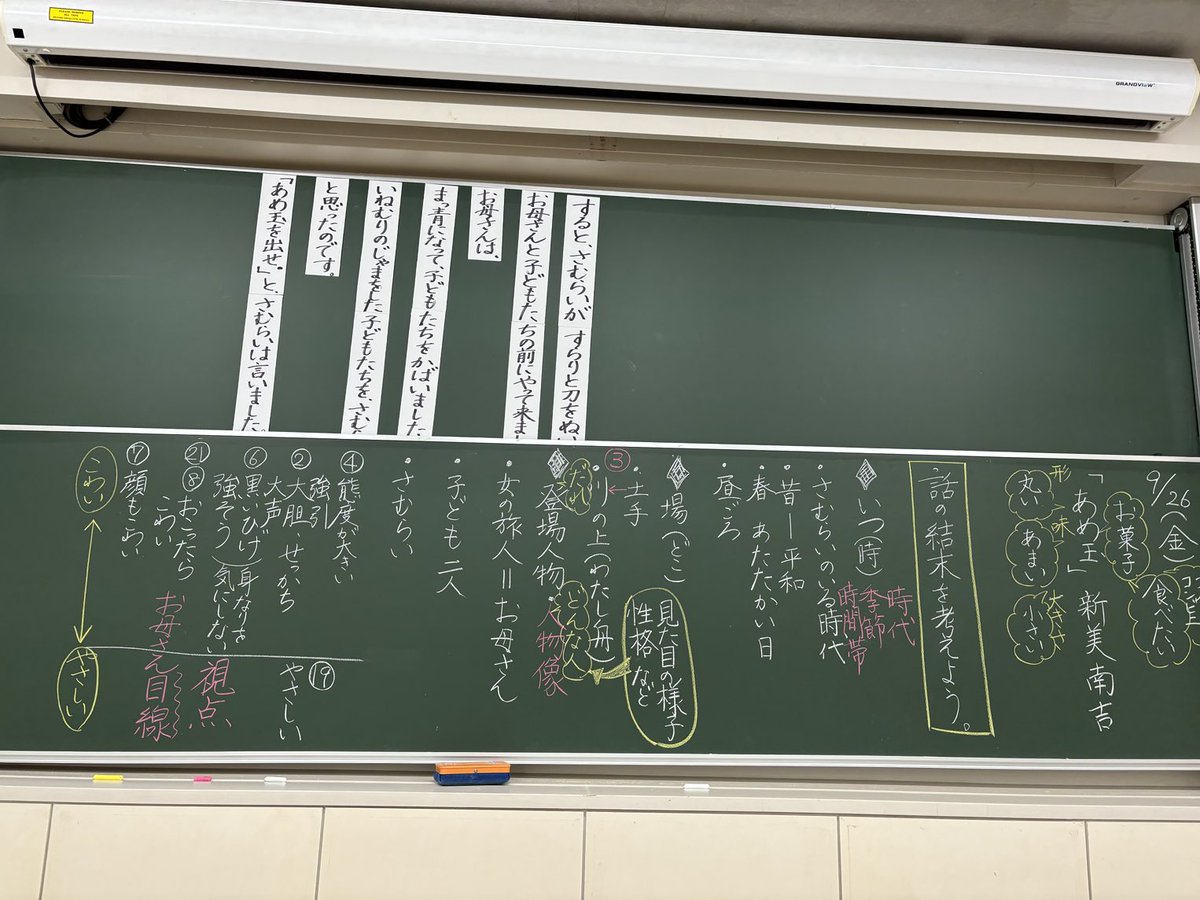 GRANDVIEW
すると、さむらいが すらりと刀をぬい
お母さんと子どもたちの前にやって来まし
お母さんは、
まっ青になって、子どもたちをかばいました
いねむりのじゃまをした子どもたちを、さむら
と思ったのです。
「あめ玉を出せ。」と、さむらいは言いました
9/26(金)
食べたい
お菓子
「あめ玉」 新美南吉
形
味
大きさ
丸い
あまい
小さい
話の結末を考えよう。
いつ(時)
時代
季節
時間帯
・さむらいのいる時代
・昔―平和
・春 あたたかい日
・昼ごろ
場(どこ)
・土手
③
・川の上(わたし舟)
見た目の様子
性格など
だれ
どんな人
登場人物・人物像
・女の旅人=お母さん
・子ども二人
・さむらい
④態度が大きい
強引
②大胆、せっかち
大声
⑥黒いひげ)身なりを
強そう)気にしない
㉑
⑧おこったら
こわい
⑦顔もこわい
⑲
やさしい
視点
お母さん目線
こわい
やさしい